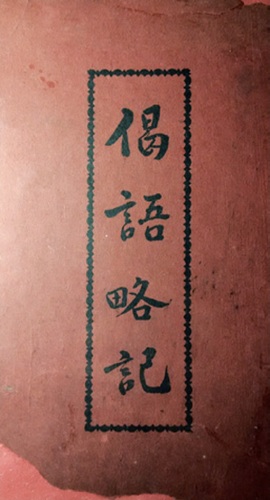 偈語略記